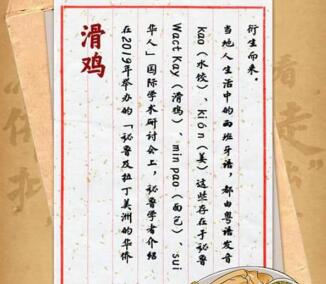 滑鸡
在2019年举办的「秘鲁及拉丁美洲的华侨
华人」国际学术研讨会上，秘鲁学者介绍
Wact Kay（滑鸡）、min pao（面包）、sui
kao（水饺）、Kión（姜）这些存在于秘鲁
当地人生活中的西班牙语，都由粤语发音
衍生而来。